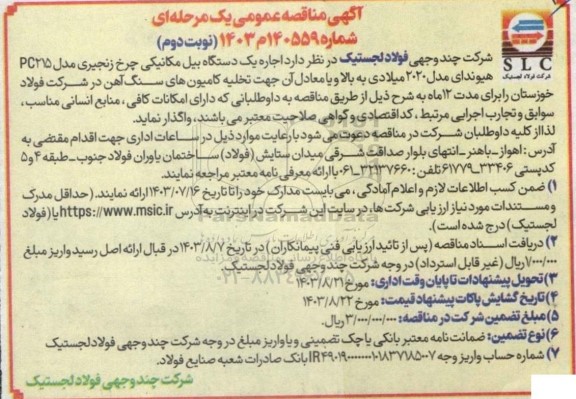 آگهی مناقصه عمومی یک مرحله‌ای
شماره ۱۴۰۵۵۹م۱۴۰۳ (نوبت دوم)
SLC
شرکت فولاد لجستیک
شرکت چند وجهی فولاد لجستیک در نظر دارد اجاره یک دستگاه بیل مکانیکی چرخ زنجیری مدل PC۲۱۵
هیوندای مدل ۲۰۲۰ میلادی به بالا و یا معادل آن جهت تخلیه کامیون های سنگ آهن در شرکت فولاد
خوزستان را برای مدت ۱۲ ماه به شرح ذیل از طریق مناقصه به داوطلبانی که دارای امکانات کافی، منابع انسانی مناسب،
سوابق و تجارب اجرایی مرتبط، کد اقتصادی و گواهی صلاحیت معتبر می باشند، واگذار نماید.
لذا از کلیه داوطلبان شرکت در مناقصه دعوت می شود با رعایت موارد ذیل در ساعات اداری جهت اقدام مقتضی به
آدرس: اهواز ـ باهنر ـ انتهای بلوار صداقت شرقی میدان ستایش (فولاد) ساختمان یاوران فولاد جنوب ـ طبقه ۴ و ۵
کدپستی ۳۳۴۰۶-۶۱۷۷۹ تلفن: ۳۲۱۳۷۶۶۰-۰۶۱ با ارائه معرفی نامه معتبر مراجعه نمایند.
۱) ضمن کسب اطلاعات لازم و اعلام آمادگی، می بایست مدارک خود را تا تاریخ ۱۴۰۳/۰۷/۱۶ ارائه نمایند. (حداقل مدرک
و مستندات مورد نیاز ارزیابی شرکت ها، در سایت این شرکت در اینترنت به آدرس https://www.msic.ir یا (فولاد
لجستیک) درج شده است).
۲) دریافت اسناد مناقصه (پس از تائید ارزیابی فنی پیمانکاران) در تاریخ ۱۴۰۳/۸/۷ در قبال ارائه اصل رسید واریز مبلغ
۷۰۰/۰۰۰ ریال (غیر قابل استرداد) در وجه شرکت چند وجهی فولاد لجستیک.
۳) تحویل پیشنهادات تا پایان وقت اداری: مورخ ۱۴۰۳/۸/۲۱
۴) تاریخ گشایش پاکات پیشنهاد قیمت: مورخ ۱۴۰۳/۸/۲۲
۵) مبلغ تضمین شرکت در مناقصه: ۳/۰۰۰/۰۰۰/۰۰۰ ریال.
۶) نوع تضمین: ضمانت نامه معتبر بانکی یا چک تضمینی و یا واریز مبلغ در وجه شرکت چند وجهی فولاد لجستیک
۷) شماره حساب واریز وجه بانک صادرات شعبه صنایع فولاد.
شرکت چند وجهی فولاد لجستیک